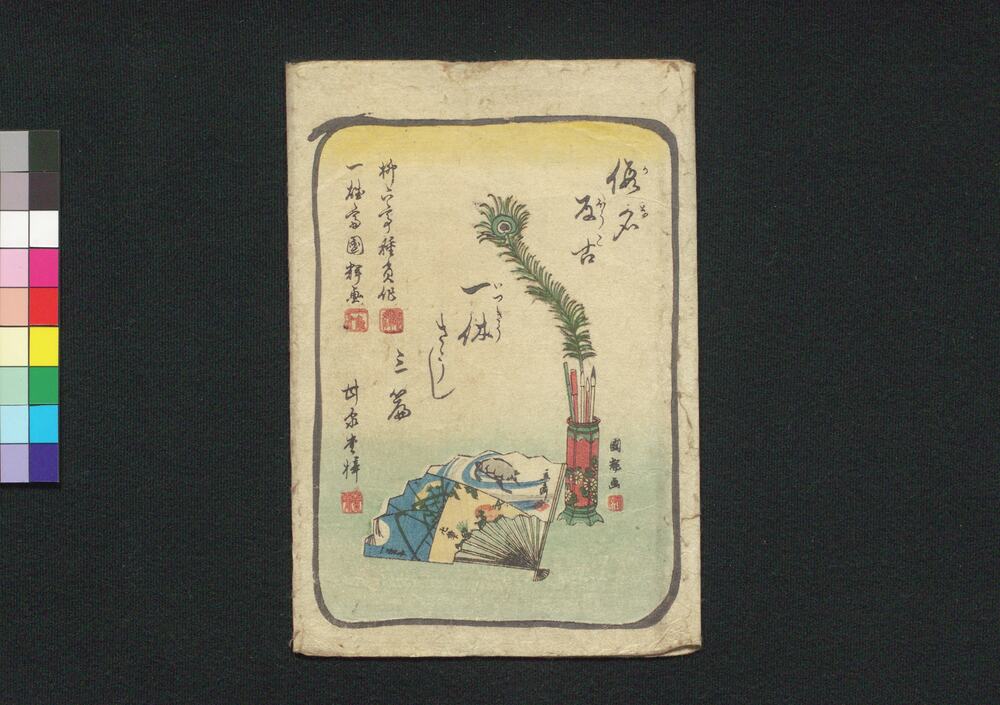 假名
かな
反古
ほうご
一休
いつきう
さうし
三篇
柳下亭種員作
一雄斎国輝画
甘泉堂梓
國輝画